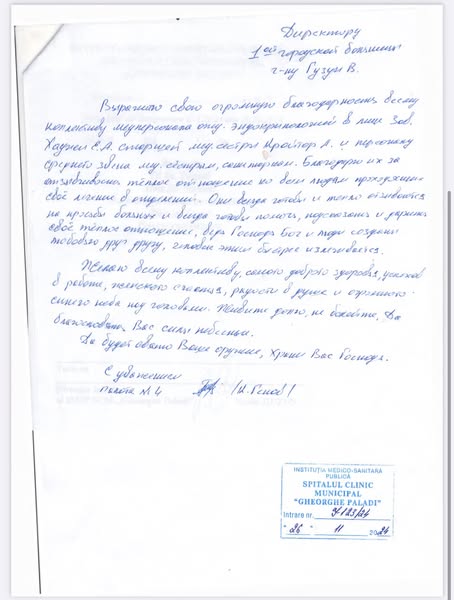 Директору
1ой городской больницы
г-ну Гузун В.
Выражаю свою огромную благодарность всему
коллективу медперсонала отд. эндокринологией в лице Зав.
Е.А. старшей мед. сестры Кройтор Л. и персоналу
среднего звена мед. сёстрам, санитаркам. Благодарю их за
отзывчивость, тёплое отношение ко всем людям проходящим
своё лечение в отделении. Они всегда готовы и тепло отзываются
на просьбы больных и всегда готовы помочь, подсказать и
своё тёплое отношение, ведь Господь Бог и люди созданы
любовью друг другу, человек этим быстрее излечивается.
Желаю всему коллективу, самого доброго здоровья, успехов
в работе, женского счастья, радости в душе и огромного
синего неба над головами. Живите долго, не болейте. Да
благословят Вас силы небесные.
Да будет свято Ваше оружие, Храни Вас Господь.
С уважением
палата № 4
INSTITUŢIA MEDICO-SANITARĂ
PUBLICĂ
SPITALUL CLINIC
MUNICIPAL
"GHEORGHE PALADI"
Intrare nr. 123/24
"26" 11 2024